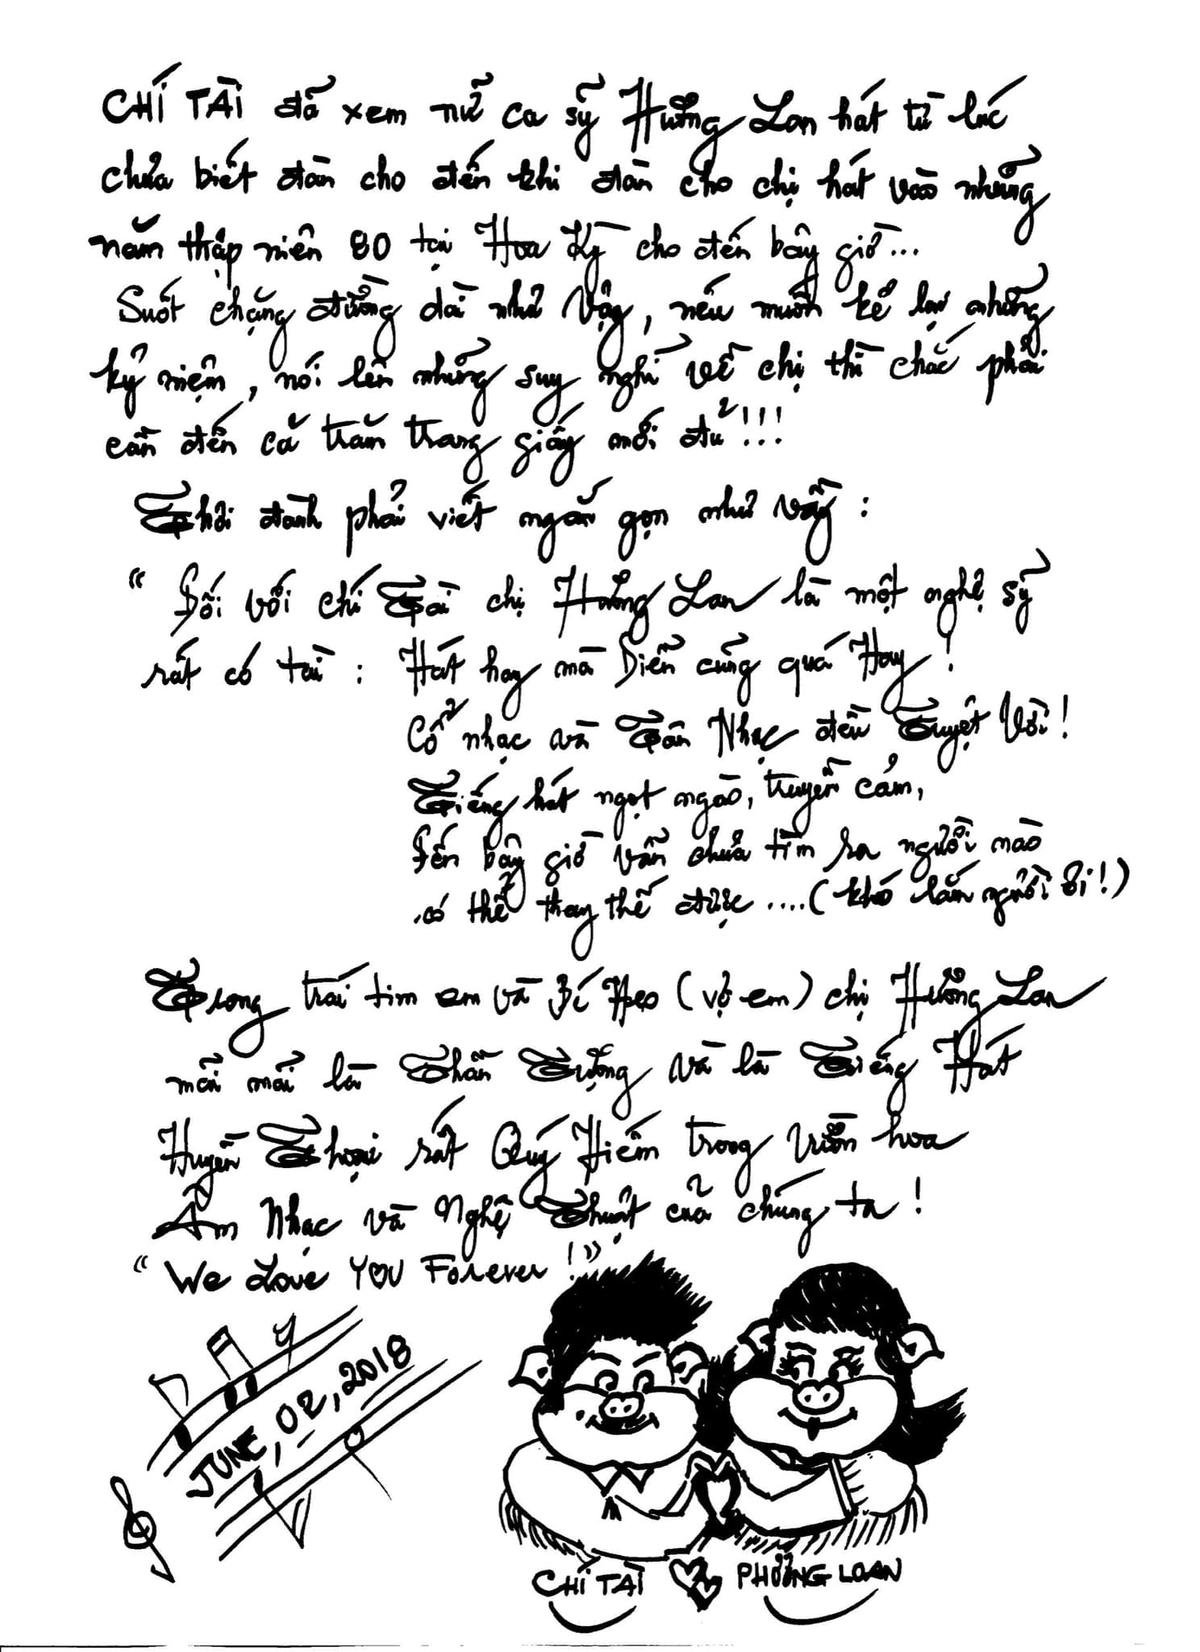 CHÍ TÀI đã xem nữ ca sỹ Hương Lan hát từ lúc
chưa biết đàn cho đến khi đàn cho chị hát vào những
năm thập niên 80 tại Hoa Kỳ cho đến bây giờ...
Suốt chặng đường dài như vậy, nếu muốn kể lại những
kỷ niệm, nói lên những suy nghĩ về chị thì chắc phải
cần đến cả trăm trang giấy mới đủ!!!
Thôi đành phải viết ngắn gọn như vầy :
“ Đối với chí Tài chị Hương Lan là một nghệ sỹ
rất có tài : Hát hay mà Diễn cũng quá Hay !
Cổ nhạc và Tân Nhạc đều Tuyệt Vời !
Tiếng hát ngọt ngào, truyền cảm,
Đến bây giờ vẫn chưa tìm ra người nào
có thể thay thế được ....( khó lắm người ơi ! )
Trong trái tim em và Bé Heo ( vợ em ) chị Hương Lan
mãi mãi là Thần Tượng và là Tiếng Hát
Huyền Thoại rất Quý Hiếm trong Vườn hoa
Âm Nhạc và Nghệ Thuật của chúng ta !
“ We Love YOU Forever ! ”
JUNE, 02, 2018
CHÍ TÀI PHƯƠNG LOAN